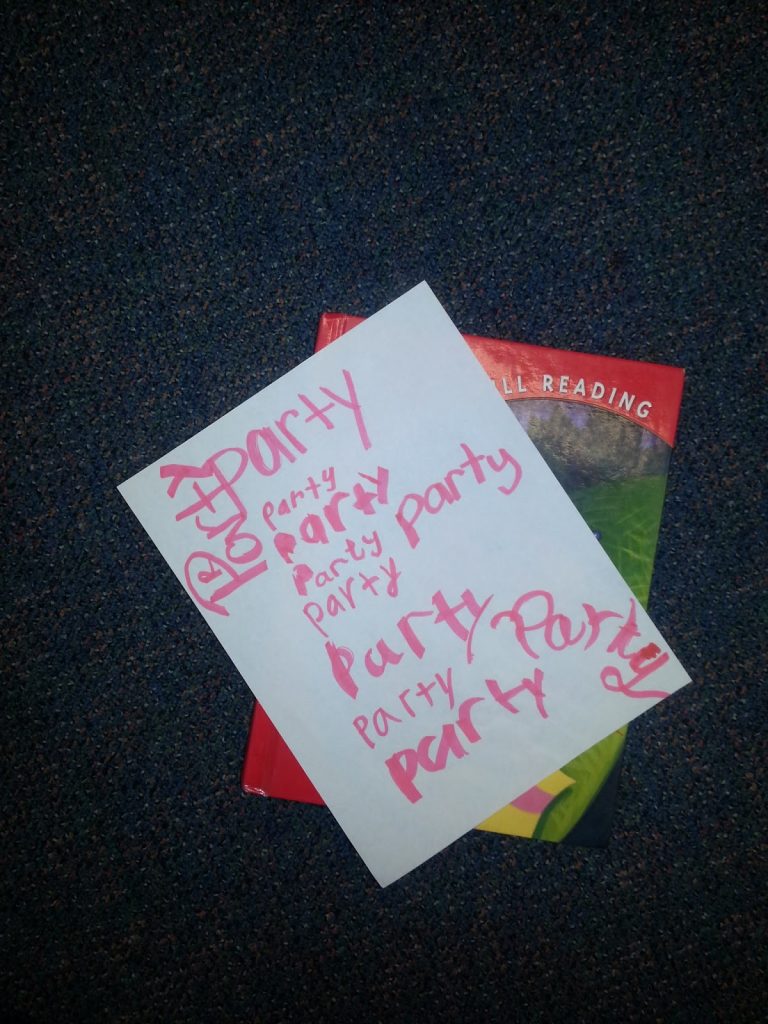 LL READING
Party
Party
party
party
party
Party
party
party
Party
party
party